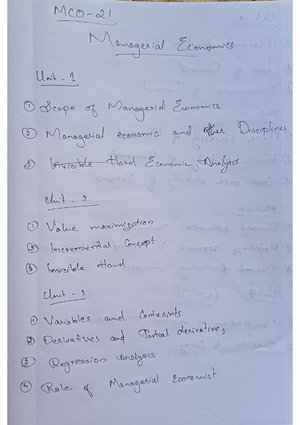 MCO-21
Managerial Economics
Unit-1
① Scope of Managerial Economics
② Managerial economics and other Disciplines
③ Invisible Hand Economic Analysis
Unit-2
① Value maximization
② Incremental Concept
③ Invisible Hand
Unit-3
① Variables and Constraints
② Derivatives and Partial derivatives
③ Regression Analysis
④ Role of Managerial Economist